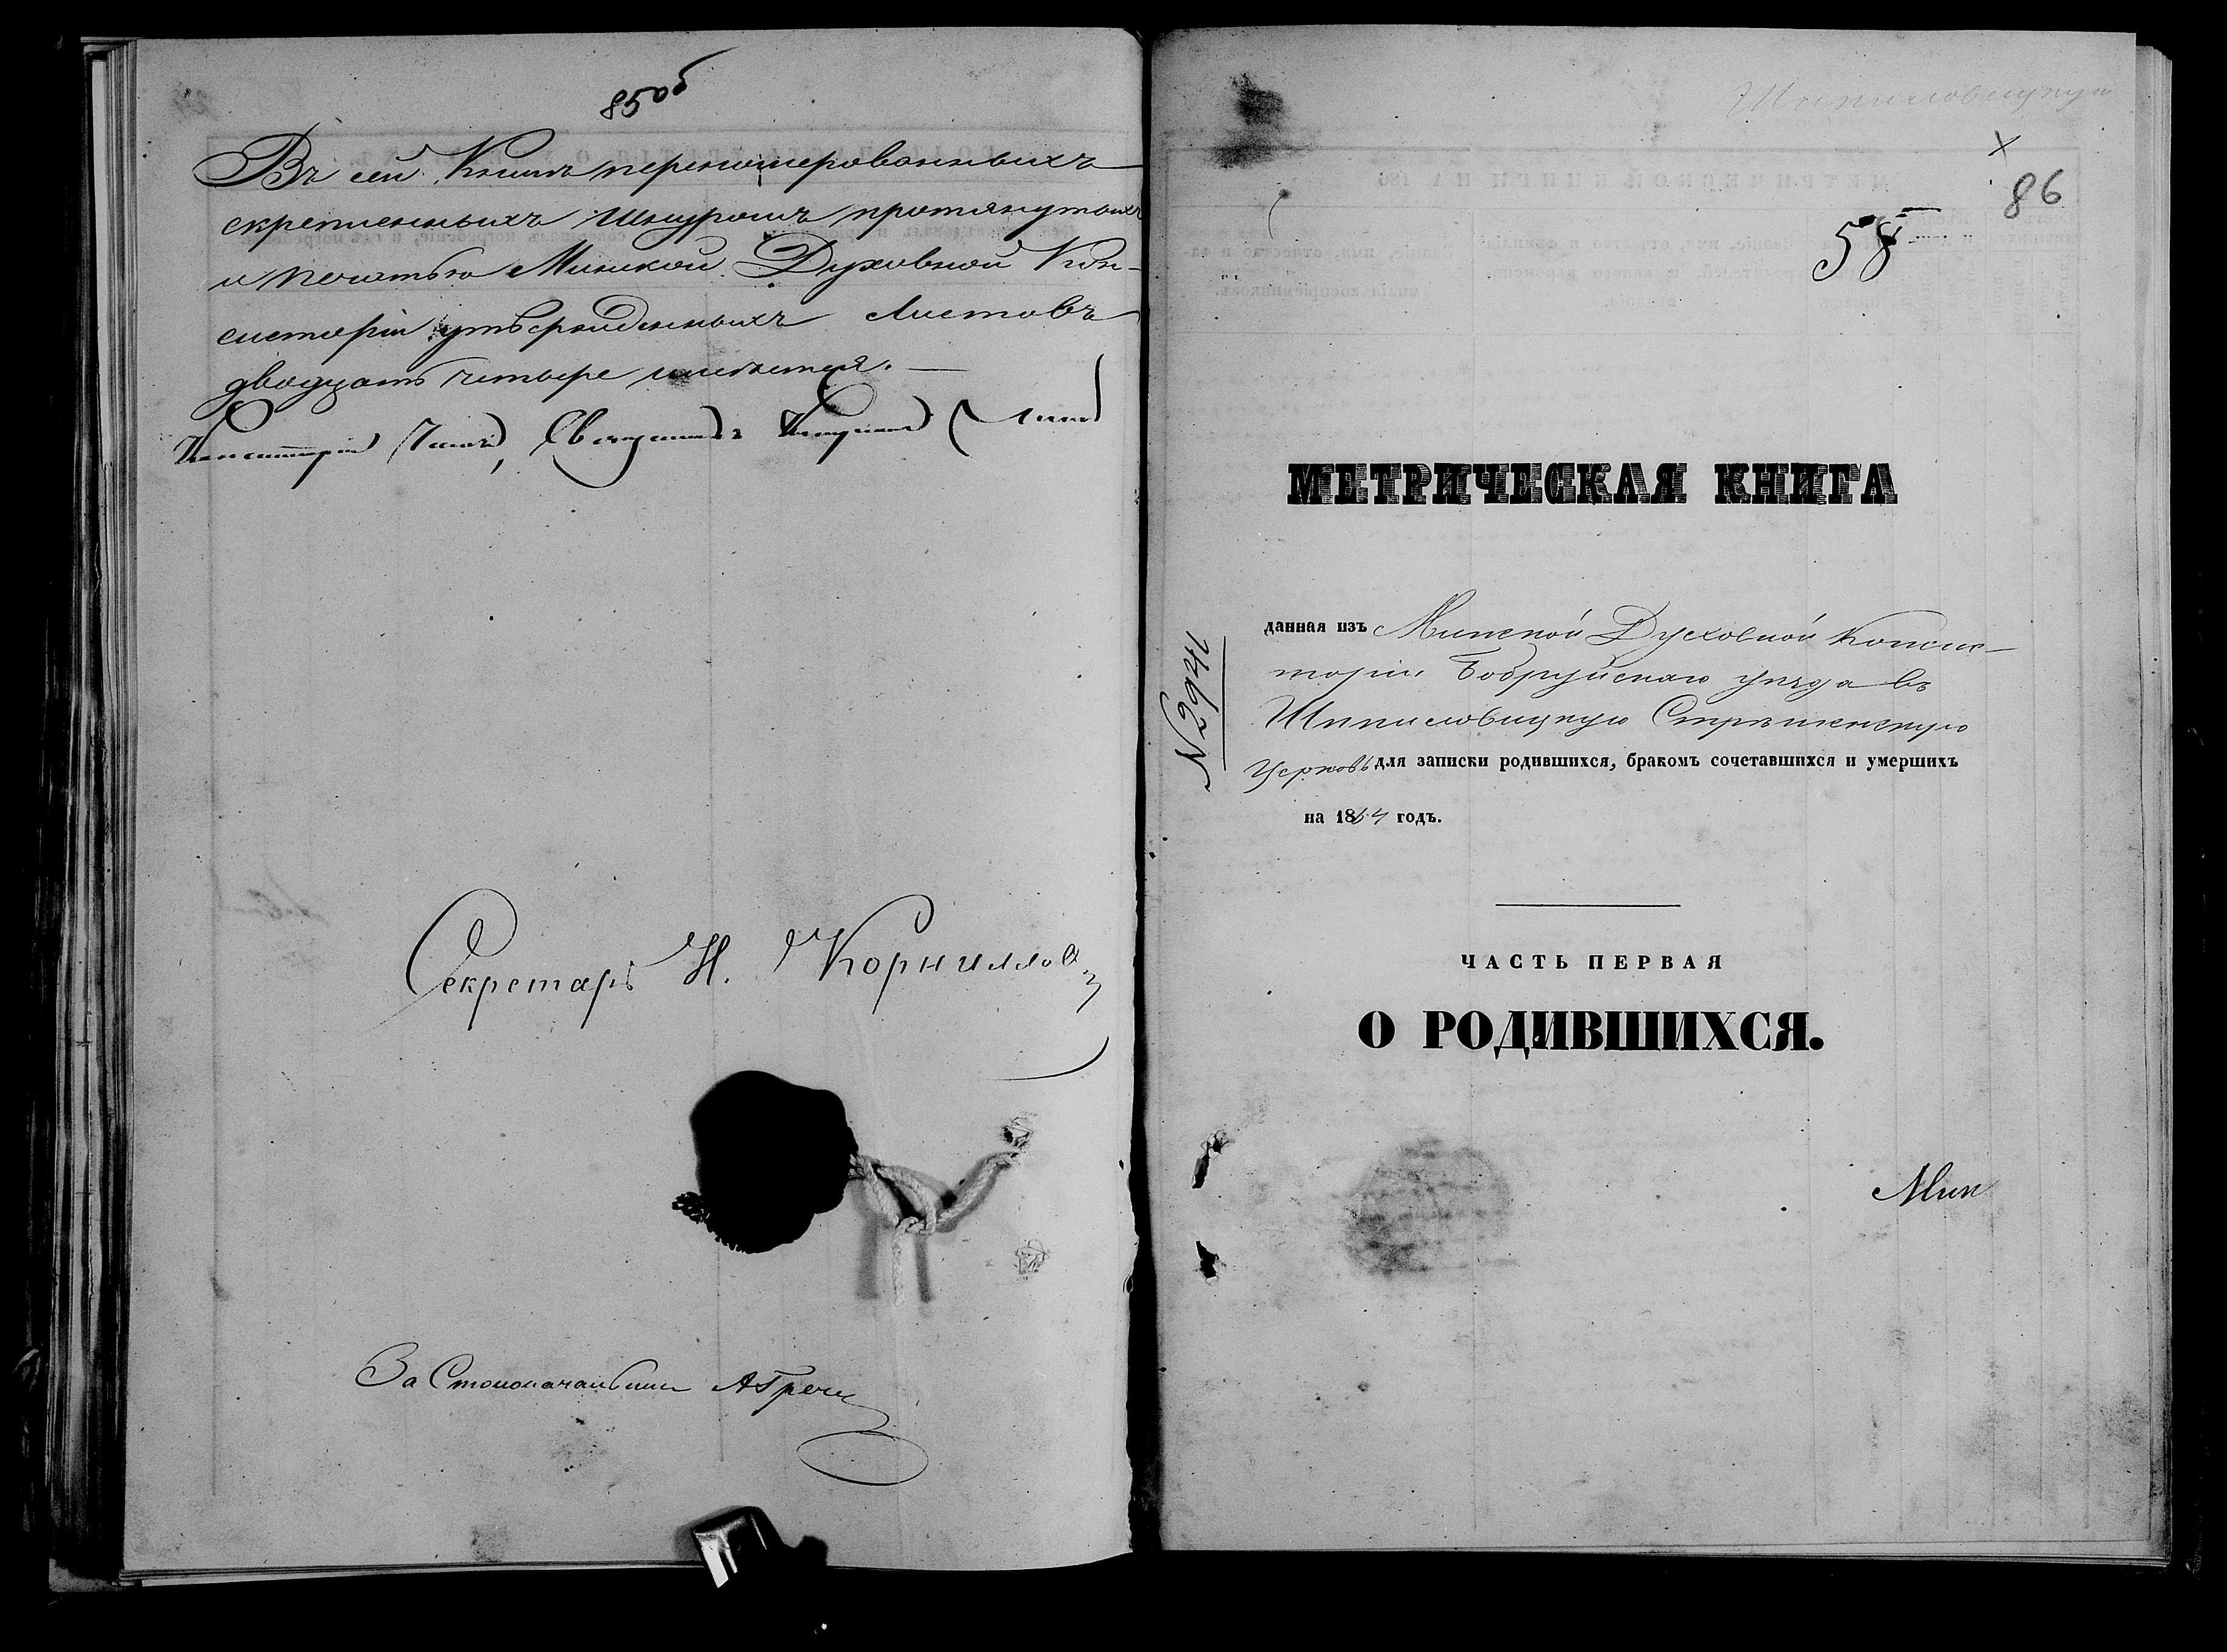 85об
Въ сей Книгѣ перенумерованныхъ
скрепленныхъ шнуромъ протянутыхъ
и печатью Минской Духовной Кон-
систоріи утвержденныхъ листовъ
двадцать четыре имѣется.
Консисторіи Членъ, Священникъ
Секретарь Н. Корниллов
За Столоначальника А Греч
Шипиловицкую
х
86
58
МЕТРИЧЕСКАЯ КНИГА
№ 2941
данная изъ Минской Духовной Консис-
торіи Бобруйскаго уѣзда въ
Шипиловицкую Срѣтенскую
Церковь для записки родившихся, бракомъ сочетавшихся и умершихъ
на 1864 годъ.
ЧАСТЬ ПЕРВАЯ
О РОДИВШИХСЯ.
Мин